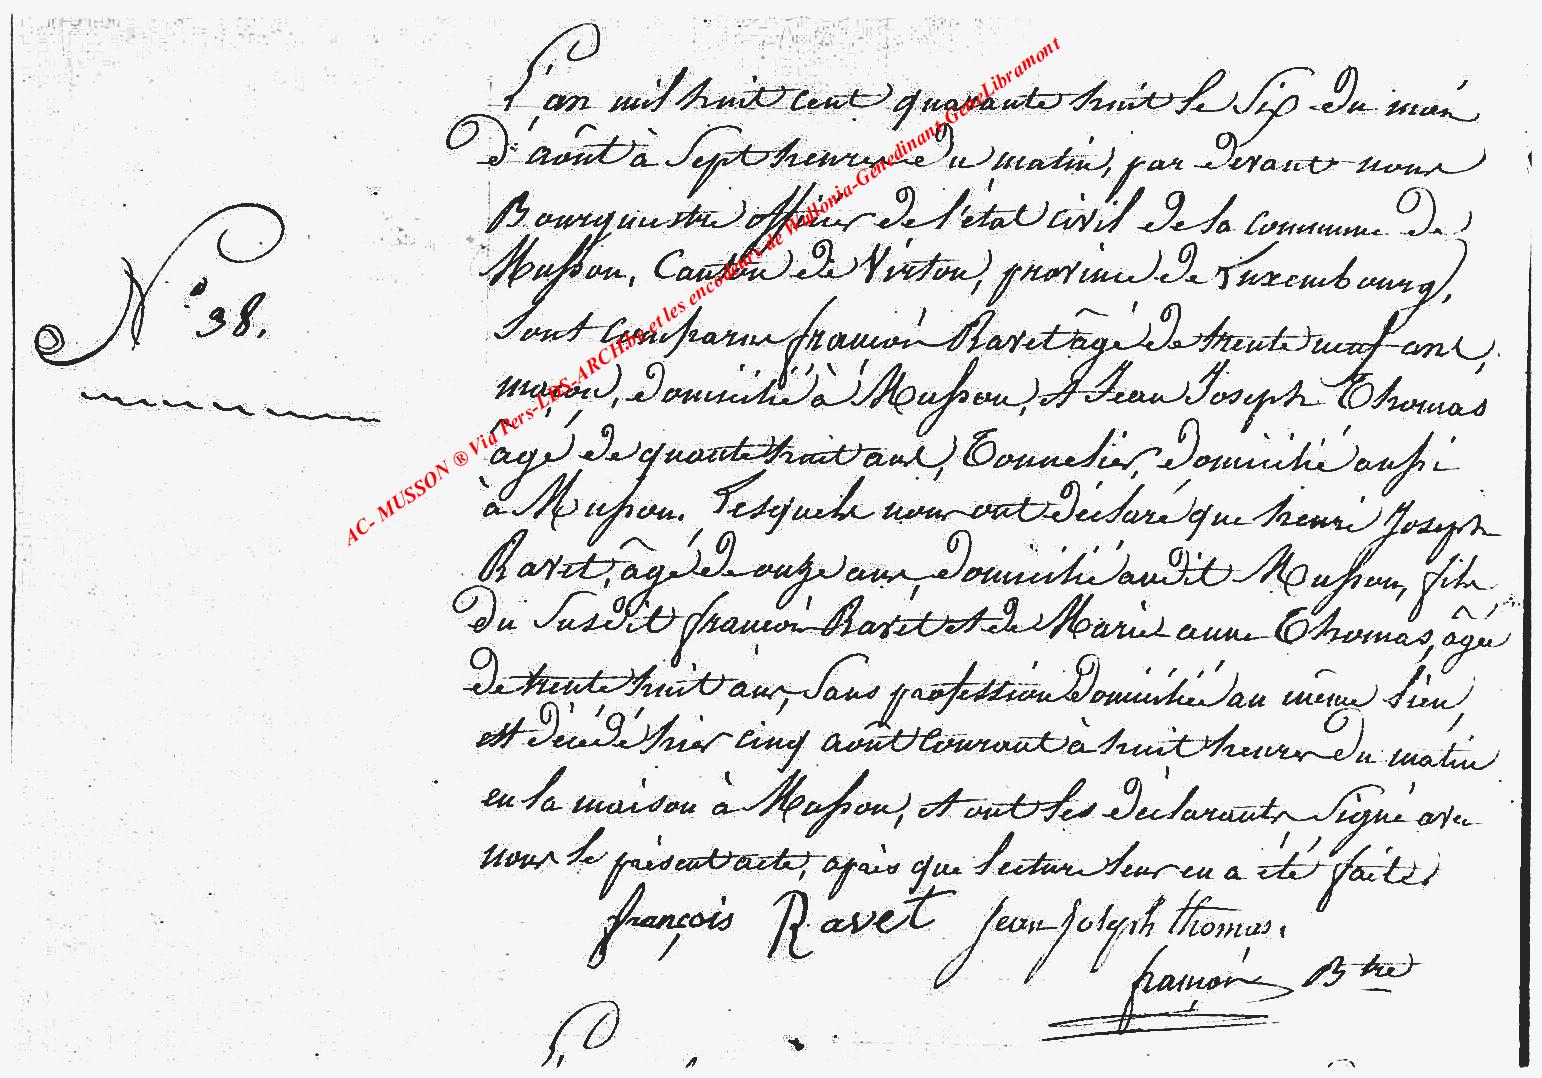 N° 38.
L'an mil huit cent quarante huit le six du mois
d'août à sept heures du matin, par devant nous
Bourguestre officier de l'état civil de la commune de
Musson, Canton de Virton, province de Luxembourg,
sont comparus françois Ravet âgé de trente neuf ans,
maçon, domicilié à Musson, et Jean Joseph Thomas
âgé de quarante huit ans, Tonnelier, domicilié aussi
à Musson. Lesquels nous ont déclaré que henri Joseph
Ravet, âgé de onze ans, domicilié audit Musson, fils
du susdit françois Ravet et de Marie anne Thomas, âgée
de trente huit ans, sans profession domiciliée au même lieu,
est décédé hier cinq août courant à huit heures du matin
en sa maison à Musson, et ont les déclarants signé avec
nous le présent acte, après que lecture leur en a été faite.
françois Ravet Jean Joseph thomas.
françois Btre
AC- MUSSON ® Via Pers-LDS-ARCH.be et les encodeurs de Wallonia-Genedinant-GeneLibramont